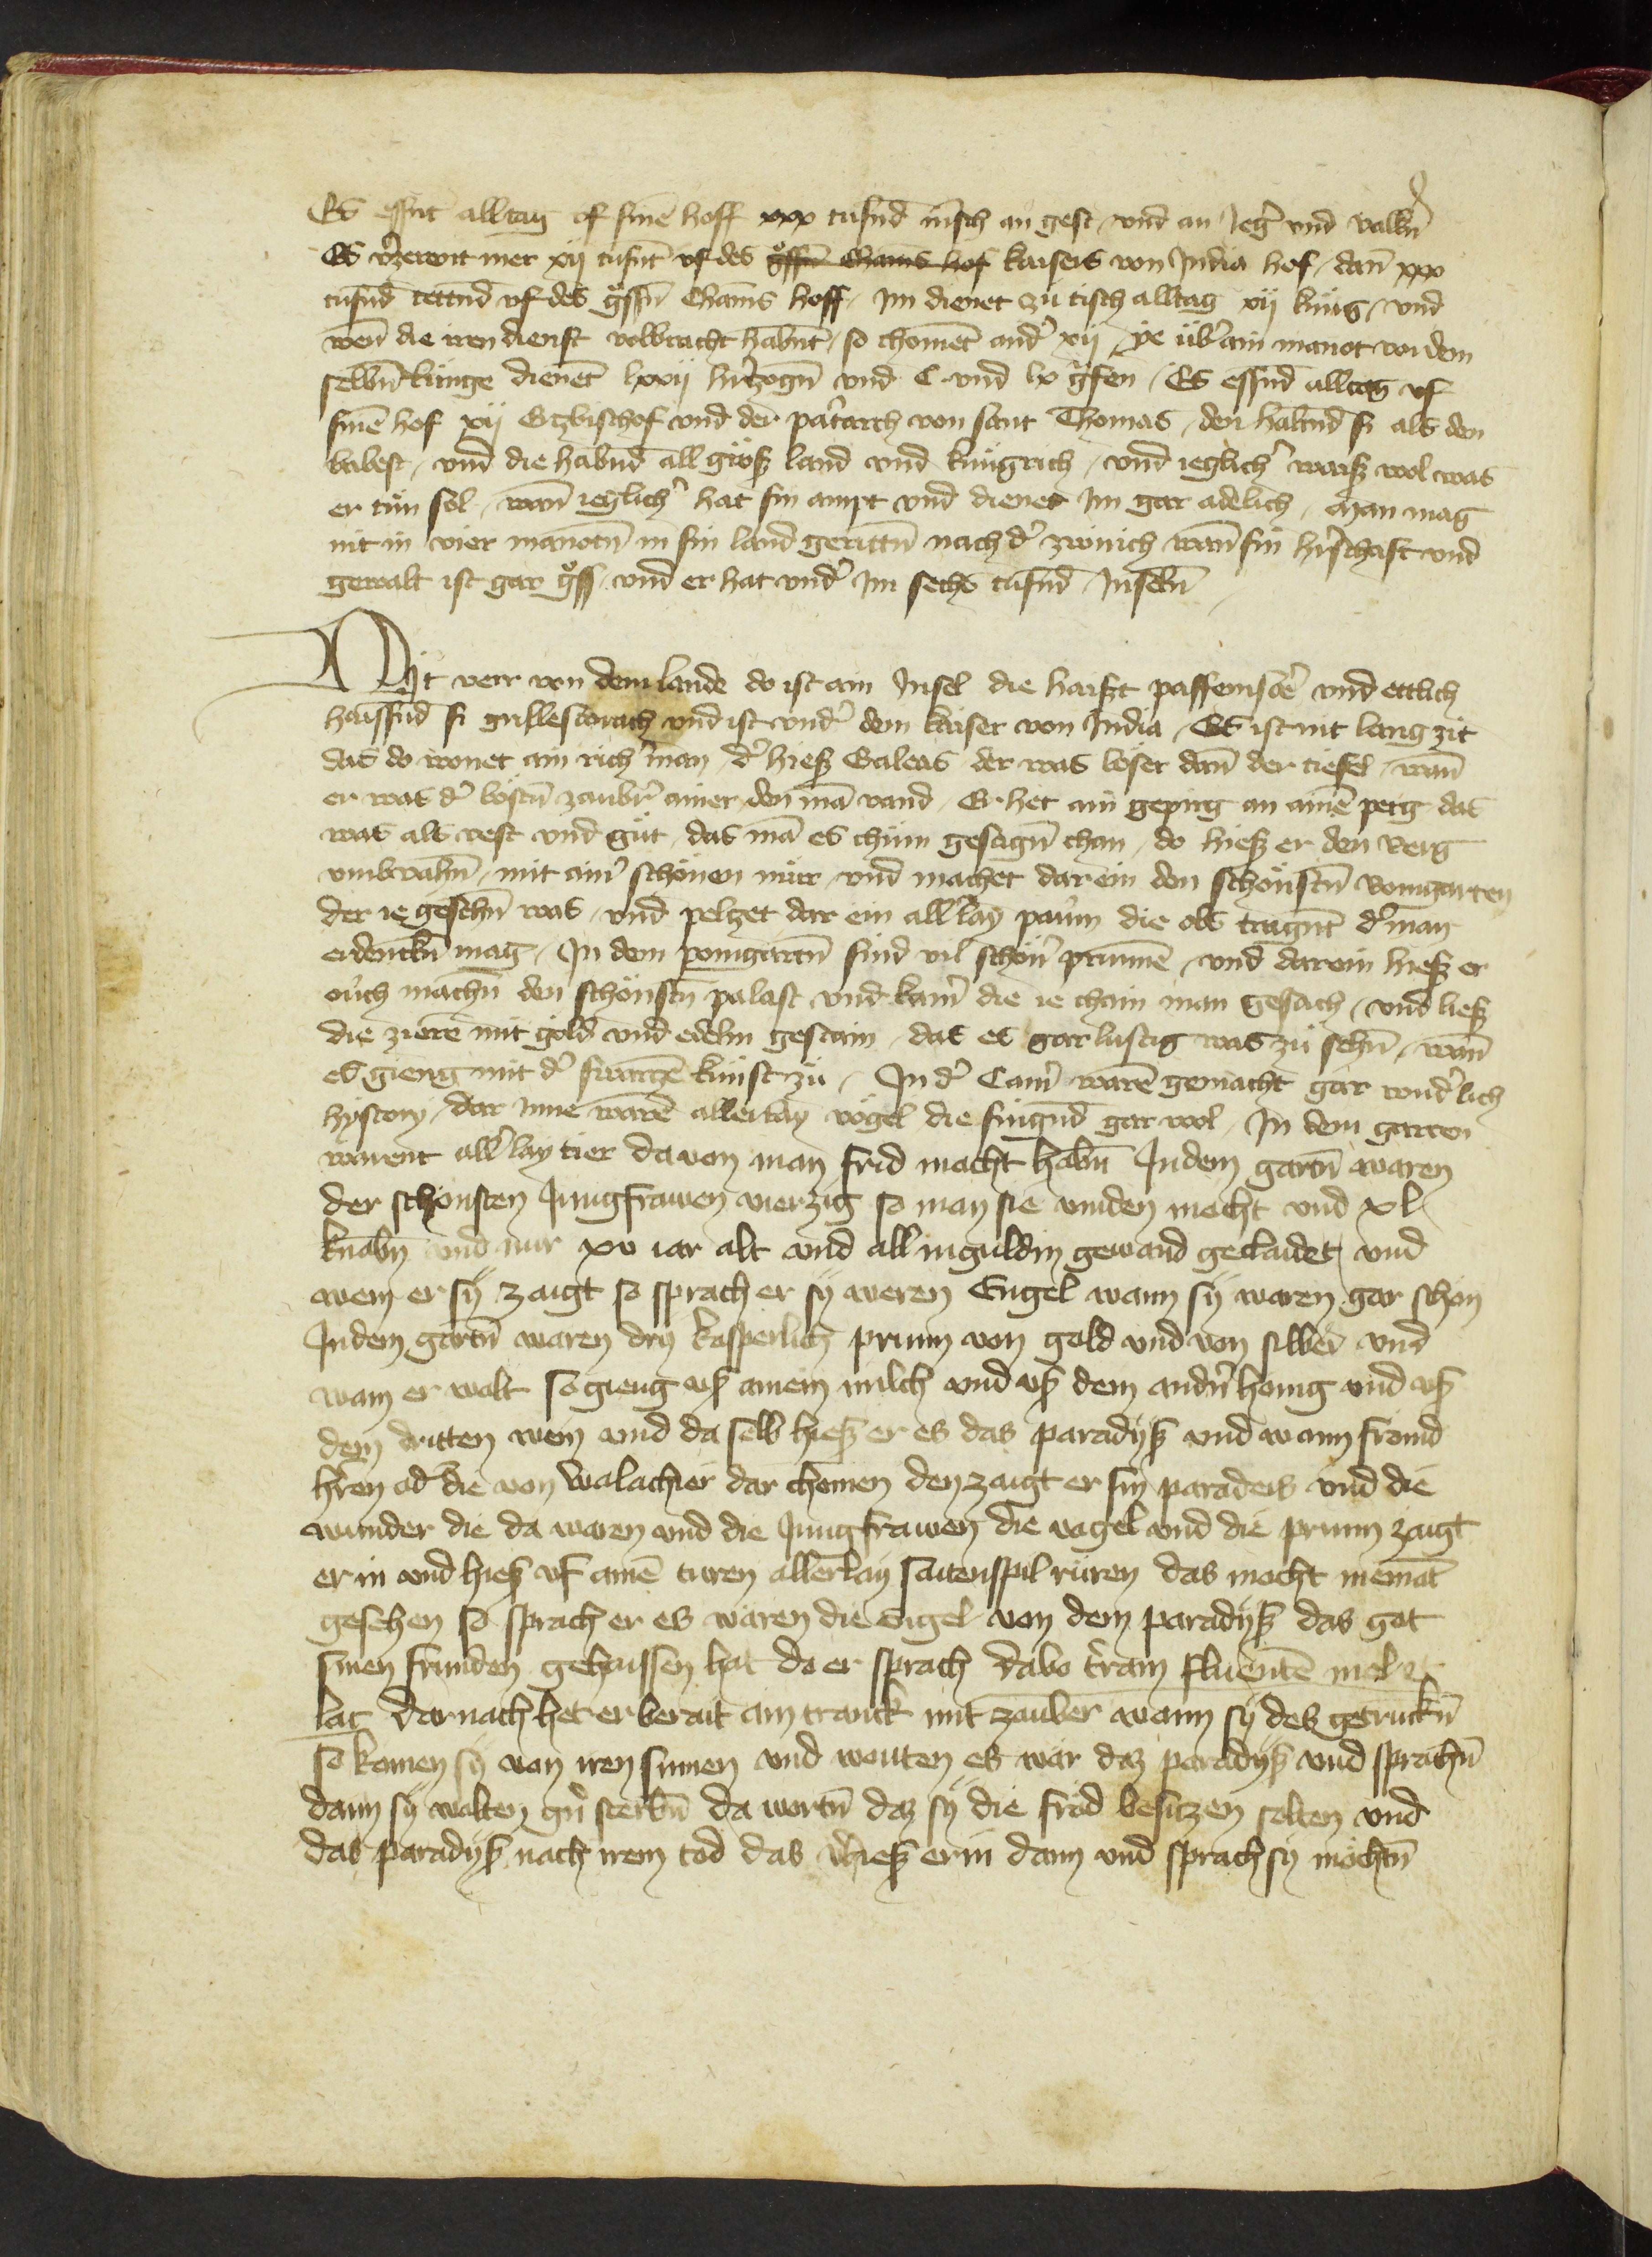 Es essnt alltag vf sine hoff xxx tusnd mensch an gest vnd an Jeg͛ vnd valkn͛
Es v͛zerent mer xij tusnt vf des gͦssn Chams hof kaisers von India hof dan̄ xxx
tusnd tettnd vf des gͦssn̄ Chams hoff Im dienet zu tisch alltag xij küng vnd
wen̄ die iren dienst volbracht habnt so chomet and͛ xij ye üb͛ ain manot von dem
selbn̄ künge dienet lxxij h͛tzogn̄ vnd C vnd lx g͛fen Es essnd alltag vf
sine hof xij Ertzbischof vnd der pat͛arch von sant Thomas den haltnd si als den
babest vnd die habnd all gröss land vnd küngrich vnd ieglich͛ waisz wol was
er tün sol wan̄ ieglich͛ hat sin ampt vnd dienet Im gar adelich Man mag
nit in vier manotn̄ in sin land gerittn̄ nach d͛ zwinch wan̄ sin h͛schaft vnd
gewalt ist gar gͦss vnd er hat vnd͛ im sechs tusnd Inseln̄
Nit verr von dem lande do ist ain Insel die haiszt paffemisore vnd ettlich
haissnd si gullestorach vnd ist vnd͛ dem kaiser von India Es ist nit lang zit
das do wonet ain rich man d͛ hiesz Galeas der was böser dan̄ der tiefel wan̄
er was d͛ böstn̄ zaubr͛ ainer den mā vand Er het ain gepirg an aine perg das
was als vest vnd güt das mā es chum gesagn̄ chan do hiesz er den berg
vmbvahn̄ mit ain͛ schönen mür vnd machet darein den schönstn̄ bomgarten
der ie geschn̄ was vnd peltzet dar ein all͛lay paum die obs tragnt d͛ man
erdenckn̄ mag In dem pomgartn̄ sind vil schön͛ prunne vnd darein hiesz er
ouch machn̄ den schönstn̄ palast vnd kam͛ die ie chain man gesach vnd liesz
die ziere mit gold vnd edeln gestain das es gar lustig was zu sehn̄ wan̄
es gieng mit d͛ swartze kunst zu In d͛ Cam͛ ware gemacht gar wnd͛lich
hystory dar Inne ware allerlay vögel die singnd gar wol In dem garten
warent all͛lay tier da von man frid macht habn̄ In dem gartn̄ waren
der schönsten Jungfrawen vierzig so man sie vinden mocht vnd xl
knabn̄ vnd nur xv iar alt vnd all in guldin gewand geclaidet vnd
wem er sÿ zaigt so sprach er sÿ weren Engel wann sÿ waren gar schön
In dem gartn̄ waren dry kosperlich prunn von gold vnd von silber vnd
wam er wolt so gieng vsz ainem milch vnd vsz dem andn͛ honig vnd vsz
dem dritten wein vnd da selb hiesz er es das paradÿsz vnd wann frömd
h͛ren od͛ die von Walachier dar chomen den zaigt er sin paradeis vnd die
wunder die da waren vnd die Jungfrawen die vogel vnd die prunn zaigt
er in vnd hiesz vf aine turen allerlay saitenspil rüren das mocht niemāt
gesehen so sprach er es wären die engel von dem paradÿsz das got
sinen frunden gehaissen hat do er sprach dabo t͛ram fluente mel et
lac darnach het er berait ain tranck mit zauber wann sÿ des getrunckn̄
so komen sÿ von iren sinnen vnd wonten es wär daz paradÿsz vnd sprachn̄
dann sÿ wolten gn͛ sterbn̄ da wortn̄ daz sÿ die fröd besitzen solten vnd
das paradÿsz nach irem tod das v͛hiesz er in dann vnd sprach sÿ möchtn̄